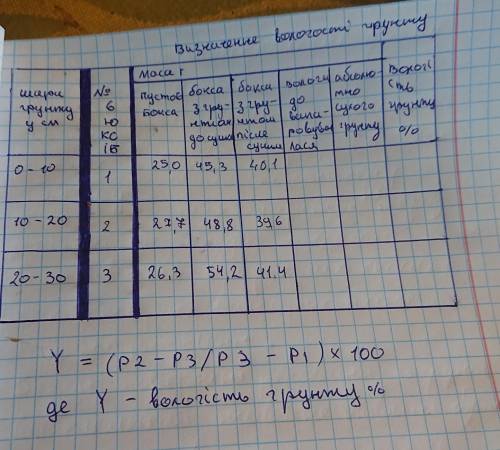 Визначення вологості грунту
Маса г
шари
грунту
у см
№
б
ю
кс
ів
пустого
бокса
бокса
з гру-
нтом
до суш
бокса
з гру-
нтом
після
сушин
вологи
до
випа-
ровувал
лася
абсолю
тно
сухого
грунту
Вологі
сть
грунту
%
0-10 1 25,0 45,3 40,1
10-20 2 27,7 48,8 39,6
20-30 3 26,3 54,2 41.4
Y = (P2 - P3/P3 - P1) × 100
де Y - вологість грунту %